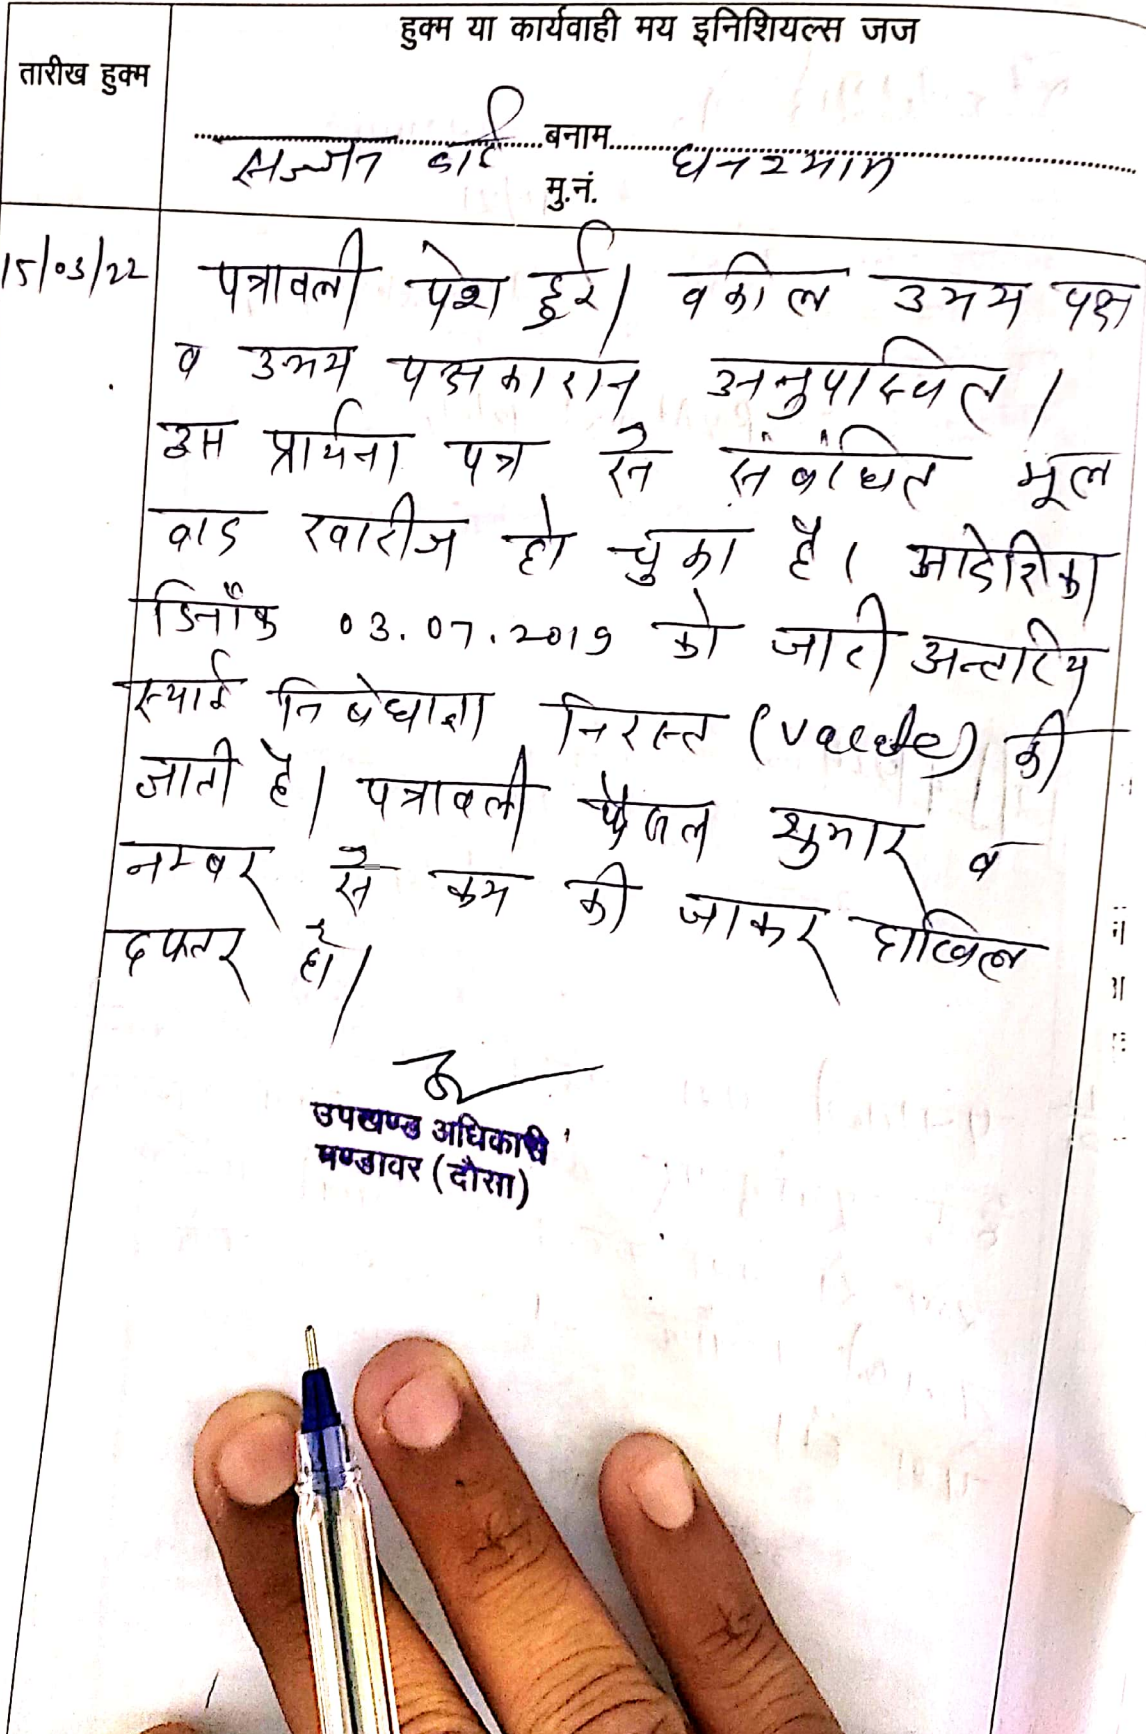 हुक्म या कार्यवाही मय इनिशियल्स जज
तारीख हुक्म
सज्जन बाई बनाम घनश्याम
मु.नं.
15/03/22 पत्रावली पेश हुई। वकील उभय पक्ष
व उभय पक्षकारान अनुपस्थित।
इस प्रार्थना पत्र से संबंधित मूल
वाद खारीज हो चुका है। आदेशिका
दिनाँक 03.07.2019 को जारी अन्तरिय
स्थाई निषेधाज्ञा निरस्त (vacate) की
जाती है। पत्रावली फैसल शुमार व
नम्बर से कम की जाकर दाखिल
दफ्तर हो।
उपखण्ड अधिकारी
मण्डावर (दौसा)